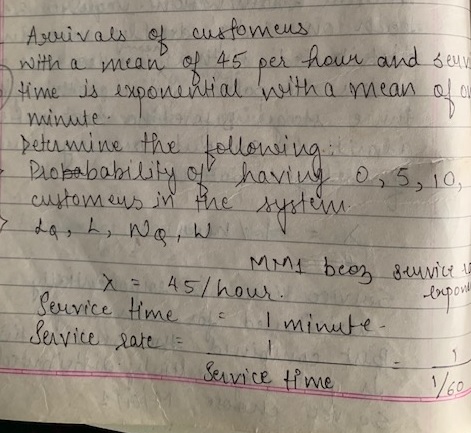 Arrivals of customers
with a mean of 45 per hour and serv
time is exponential with a mean of on
minute.
Determine the following:
Probability of having 0, 5, 10,
customers in the system.
LQ, L, WQ, W.
MM1 beoz service
expon
λ = 45/hour.
Service time = 1 minute.
Service rate = 1 / Service time = 1 / 1/60